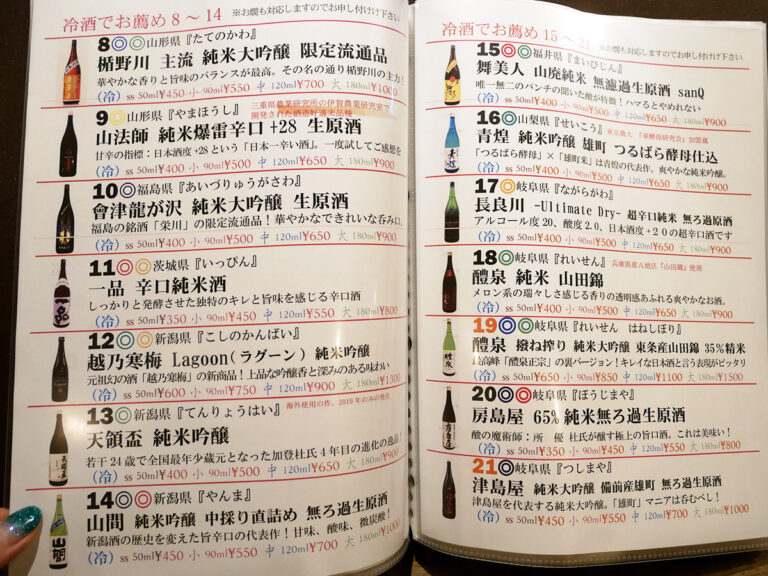 冷酒でお薦め 8 ～ 14 ※お燗も対応しますのでお申し付け下さい
8◎◎山形県『たてのかわ』
楯野川 主流 純米大吟醸 限定流通品
華やかな香りと旨味のバランスが最高。その名の通り楯野川の主力!
(冷) ss 50ml¥450 小 90ml¥550 中 120ml¥700 大 180ml¥1000
9◎山形県『やまほうし』
三重県農業研究所の伊賀農業研究室で
開発された酒造好適米品種
山法師 純米爆雷辛口+28 生原酒
甘辛の指標：日本酒度+28という「日本一辛い酒」。一度試してご感想を
(冷) ss 50ml¥400 小 90ml¥500 中 120ml¥650 大 180ml¥900
10◎福島県『あいづりゅうがさわ』
會津龍が沢 純米大吟醸 生原酒
福島の銘酒「栄川」の限定流通品！華やかなできれいな呑み口。
(冷) ss 50ml¥400 小 90ml¥500 中 120ml¥650 大 180ml¥900
11◎◎茨城県『いっぴん』
一品 辛口純米酒
しっかりと発酵させた独特のキレと旨味を感じる辛口酒
(冷) ss 50ml¥350 小 90ml¥450 中 120ml¥550 大 180ml¥800
12◎◎新潟県『こしのかんばい』
越乃寒梅 Lagoon(ラグーン) 純米吟醸
元祖幻の酒「越乃寒梅」の新商品！上品な吟醸香と深みのある味わい
(冷) ss 50ml¥600 小 90ml¥750 中 120ml¥900 大 180ml¥1300
13◎新潟県『てんりょうはい』 海外使用の作、2019年のみの発売
天領盃 純米吟醸
若干24歳で全国最年少蔵元となった加登杜氏4年目の進化の逸品！
(冷) ss 50ml¥400 小 90ml¥500 中 120ml¥650 大 180ml¥900
14◎◎新潟県『やんま』
山間 純米吟醸 中採り直詰め 無ろ過生原酒
新潟酒の歴史を変えた旨辛口の代表作！甘味、酸味、微炭酸！
(冷) ss 50ml¥450 小 90ml¥550 中 120ml¥700 大 180ml¥1000
冷酒でお薦め 15 ～ 21 ※お燗も対応しますのでお申し付け下さい
15◎◎福井県『まいびじん』
舞美人 山廃純米 無濾過生原酒 sanQ
唯一無二のパンチの聞いた酸が特徴！ハマるとやめれない
(冷) ss 50ml¥400 小 90ml¥500 中 120ml¥650 大 180ml¥900
16◎山梨県『せいこう』 東京農大「華酵母研究会」加盟蔵
青煌 純米吟醸 雄町 つるばら酵母仕込
「つるばら酵母」×「雄町米」は青煌の代表作。爽やかな純米吟醸。
(冷) ss 50ml¥400 小 90ml¥500 中 120ml¥650 大 180ml¥900
17◎岐阜県『ながらがわ』
長良川 -Ultimate Dry- 超辛口純米 無ろ過原酒
アルコール度20、酸度2.0、日本酒度+20の超辛口酒です
(冷) ss 50ml¥400 小 90ml¥500 中 120ml¥650 大 180ml¥900
18◎岐阜県『れいせん』 兵庫県産A地区『山田錦』使用
醴泉 純米 山田錦
メロン系の瑞々しさ感じる香りの透明感あふれる爽やかなお酒。
(冷) ss 50ml¥400 小 90ml¥500 中 120ml¥650 大 180ml¥900
19◎◎岐阜県『れいせん はねしぼり』
醴泉 撥ね搾り 純米大吟醸 東条産山田錦 35%精米
最高峰「醴泉正宗」の裏バージョン！キレイな日本酒と言う表現がピッタリ
(冷) ss 50ml¥650 小 90ml¥850 中 120ml¥1100 大 180ml¥1500
20◎◎岐阜県『ぼうじまや』
房島屋 65%純米無ろ過生原酒
酸の魔術師：所 優 杜氏が醸す極上の旨口酒。これは美味い！
(冷) ss 50ml¥350 小 90ml¥450 中 120ml¥550 大 180ml¥800
21◎岐阜県『つしまや』
津島屋 純米大吟醸 備前産雄町 無ろ過生原酒
津島屋を代表する純米大吟醸。「雄町」マニアは呑むべし！
(冷) ss 50ml¥450 小 90ml¥550 中 120ml¥700 大 180ml¥1000